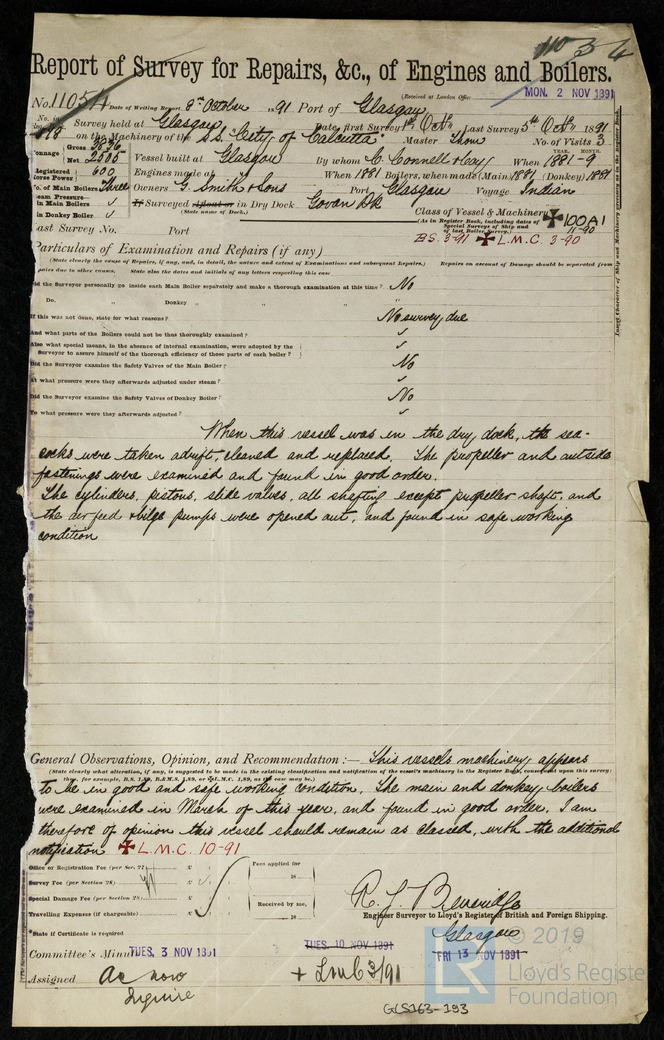 Report of Survey for Repairs, &c., of Engines and Boilers.
(Received at London Office
MON. 2 NOV 1891
No. 11054 Date of Writing Report 9th October 1891 Port of Glasgow
No. in
Survey held at Glasgow Date, first Survey 1st Octr Last Survey 5th Octr 1891
on the Machinery of the S.S. "City of Calcutta" Master Thom No. of Visits 3
Tonnage Gross 3836
Net 2505
Vessel built at Glasgow By whom C. Connell & Coy When 1881-9
YEAR. MONTH.
Registered Horse Power 600
Engines made at When 1881 Boilers, when made (Main) 1881 (Donkey) 1881
No. of Main Boilers Three
Owners G. Smith & Sons Port Glasgow Voyage Indian
Steam Pressure in Main Boiler ✓
If Surveyed afloat or in Dry Dock Govan Dk
(State name of Dock.)
in Donkey Boiler ✓
Class of Vessel & Machinery ✠100A1
(As in Register Book, including dates of Special Surveys of Ship and of last Boiler Survey.)
11-90
Last Survey No. Port
B.S. 3-91 ✠ L.M.C. 3-90
Particulars of Examination and Repairs (if any)
(State clearly the cause of Repairs, if any, and, in detail, the nature and extent of Examinations and subsequent Repairs.) Repairs on account of Damage should be separated from
repairs due to other causes. State also the dates and initials of any letters respecting this case
Did the Surveyor personally go inside each Main Boiler separately and make a thorough examination at this time? No
Do. Donkey " " " "
If this was not done, state for what reasons? No survey due
And what parts of the Boilers could not be thoroughly examined? ✓
Also what special means, in the absence of internal examination, were adopted by the
Surveyor to assure himself of the thorough efficiency of those parts of each boiler? ✓
Did the Surveyor examine the Safety Valves of the Main Boiler? No
At what pressure were they afterwards adjusted under steam? ✓
Did the Surveyor examine the Safety Valves of Donkey Boiler? No
To what pressure were they afterwards adjusted? ✓
When this vessel was in the dry dock, the sea-
cocks were taken adrift, cleaned and replaced. The propeller and outside
fastenings were examined and found in good order.
The cylinders, pistons, slide valves, all shafting except propeller shaft, and
the air feed & bilge pumps were opened out, and found in safe working
condition
General Observations, Opinion, and Recommendation :— This vessels machinery appears
(State clearly what alteration, if any, is suggested to be made in the existing classification and notification of the vessel's machinery in the Register Book, consequent upon this survey;
thus, for example, B.S. 1,89, B.&M.S. 1,89, or ✠L.M.C. 1,89, as the case may be.)
to be in good and safe working condition. The main and donkey boilers
were examined in March of this year, and found in good order. I am
therefore of opinion this vessel should remain as classed, with the additional
notification ✠ L.M.C. 10-91
Office or Registration Fee (per Sec. 27) £ : :
Fees applied for
18
Survey Fee (per Section 28) £ : :
Special Damage Fee (per Section 28) £ : :
Received by me,
18
Travelling Expenses (if chargeable) £ : :
R. J. Beveridge
Engineer Surveyor to Lloyd's Register of British and Foreign Shipping.
*State if Certificate is required
Glasgow
Committee's Minute TUES. 3 NOV 1891
TUES. 10 NOV 1891
FRI 13 NOV 1891
Assigned As now
+ LMC 3/91
Inquire
GLS163-193
© 2019
LR
Lloyd's Register
Foundation